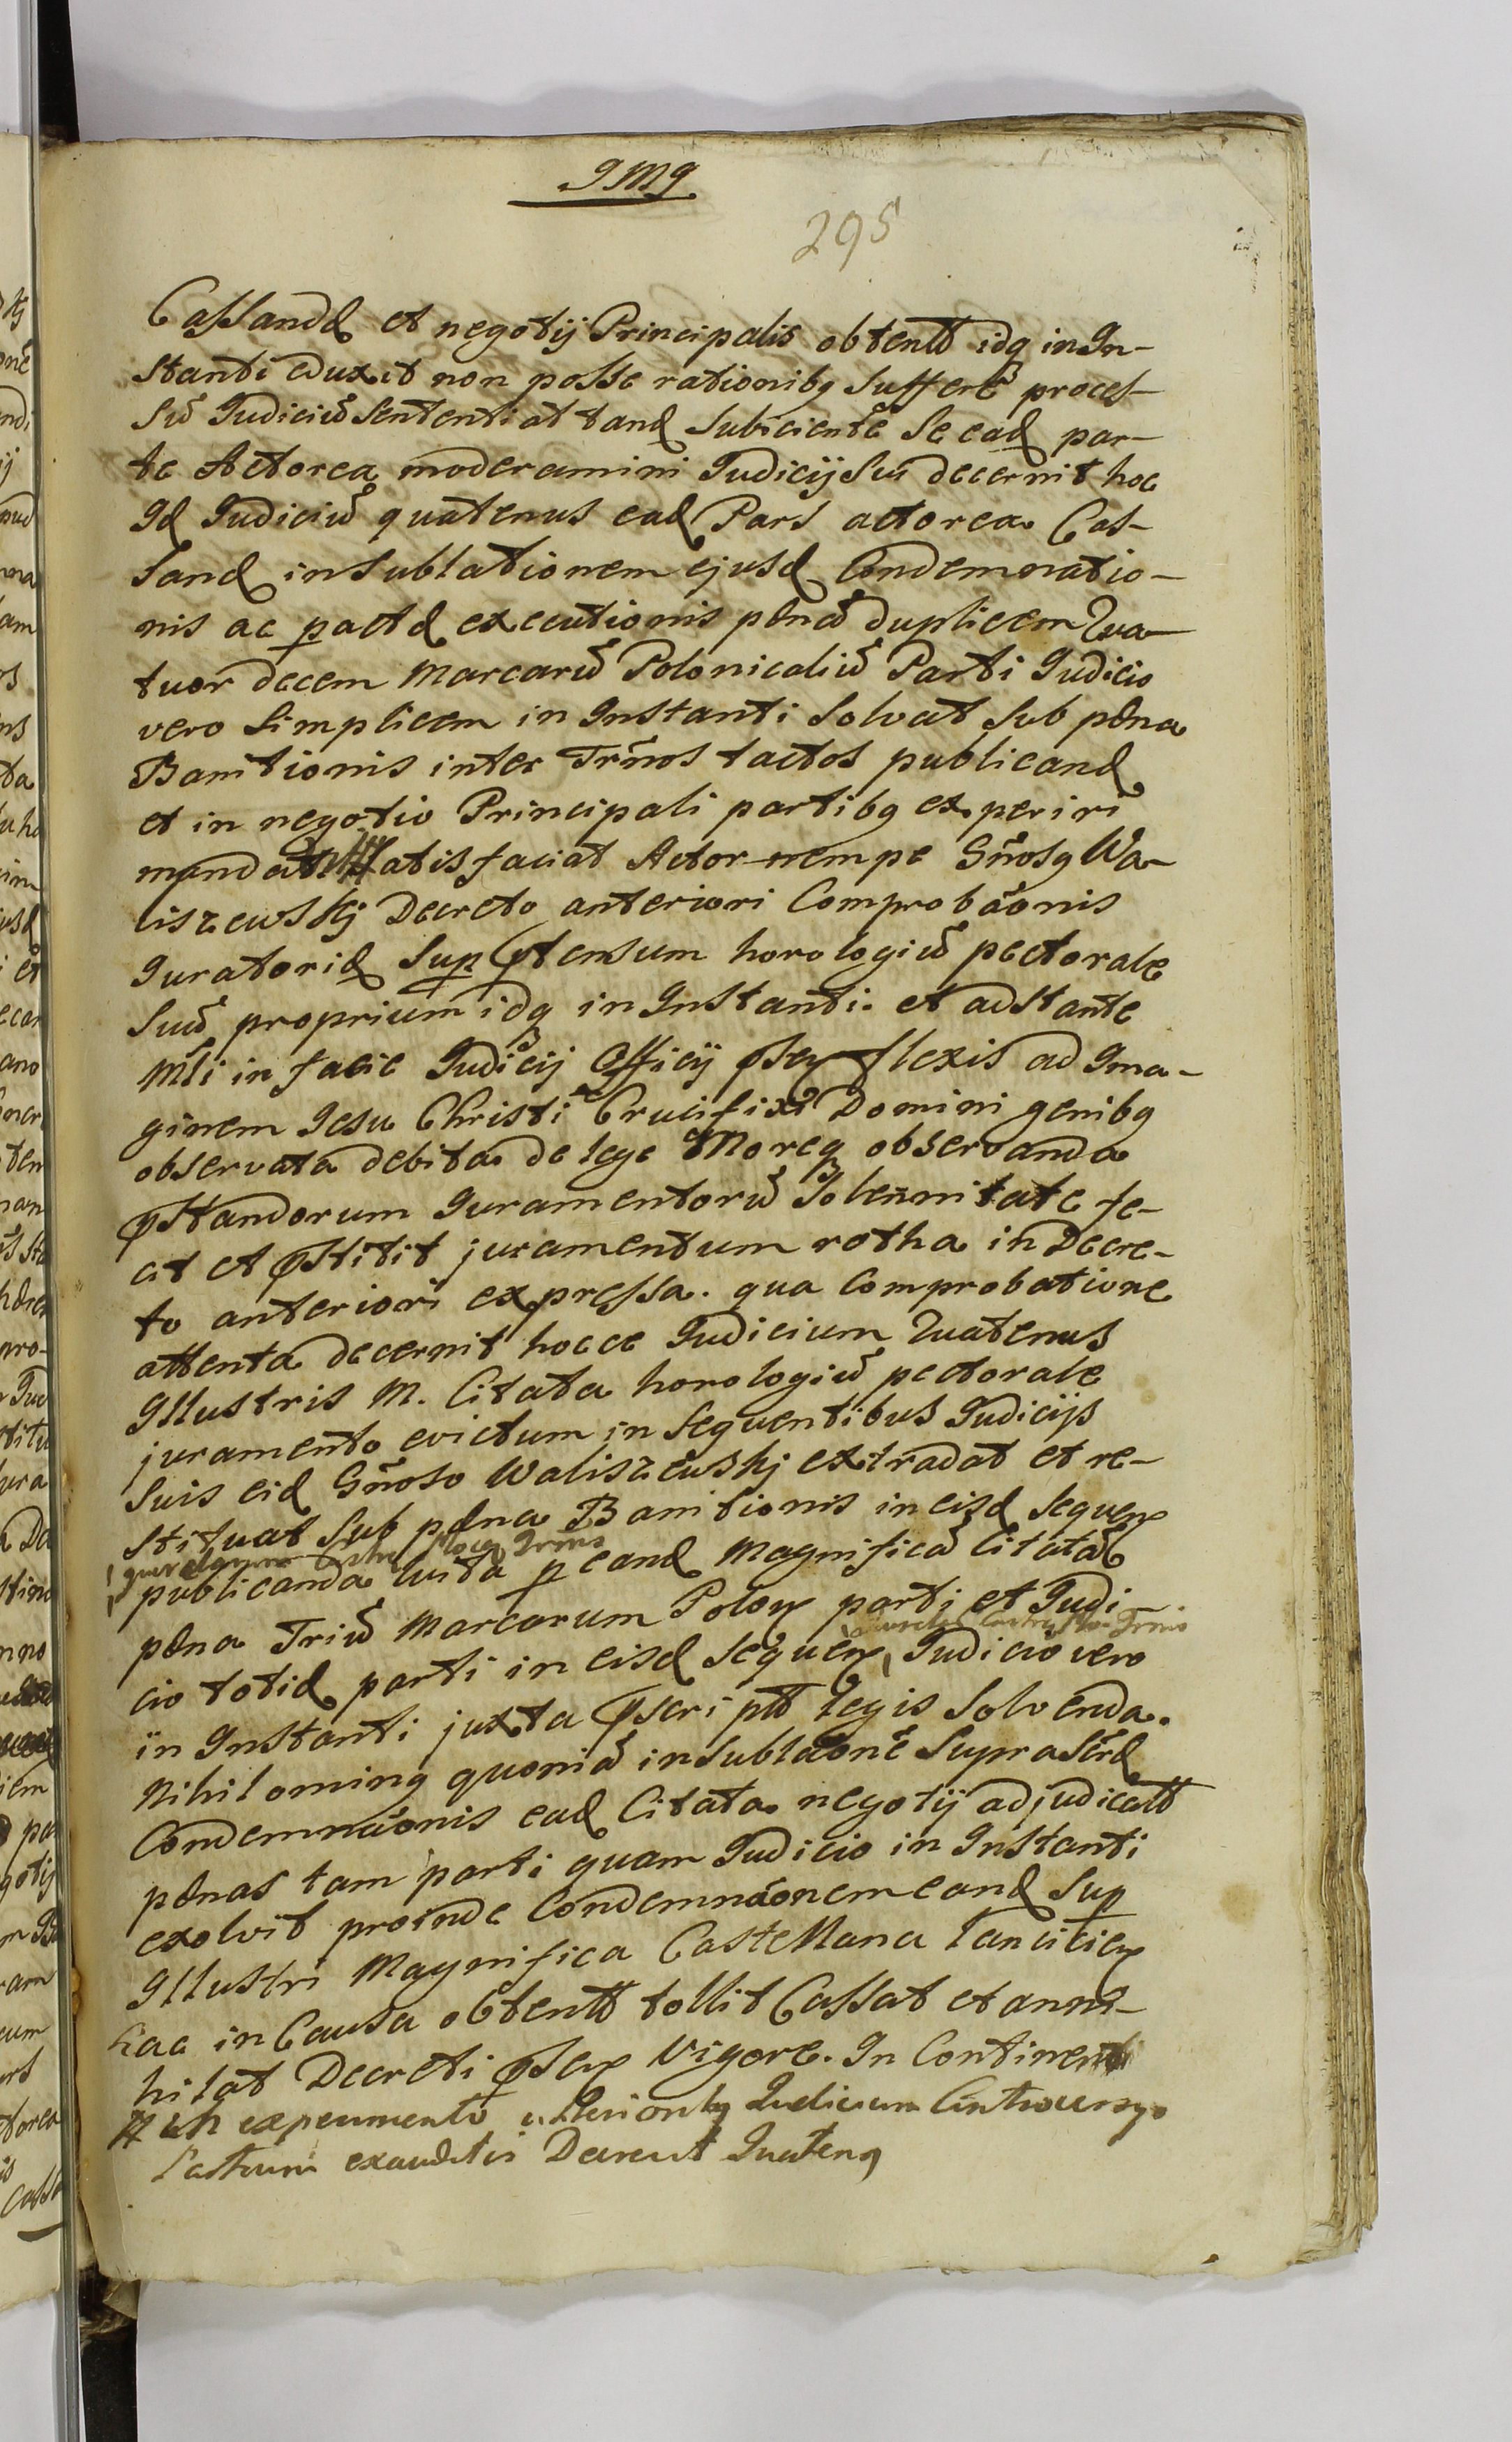 JMJ
295
Cassandd et negotij Principalis obtentt idq in In-
stanti eduxit non posse rationibq sufferē proces-
sū Judiciū sententiat tand subiciente se ead par-
te Actorea moderamini Judicij sui decernit hoc
Id Judiciū quatenus ead Pars actorea Cas-
sand in sublationem ejusd Condemnatio-
nis ac pactd executionis pœnā duplicem Qua-
tuor decem Marcarū Polonicaliū Parti Judicio
vero simplicem in Instanti solvat sub pœna
Banitionis inter Trm̃os tactos publicand
et in negotio Principali partibq experiri
mandat satisfaciat Actor nempe Gñosq Wa-
liszewskj Decreto anteriori Comprobāonis
Juratorid sup ptensum horologiū pectorale
suū proprium idq in Instanti et adstante
Mli in facie Judicij Officij psex flexis ad Ima-
ginem Jesu Christi Crucifixi Domini genibq
observata debita de lege Moreq observanda
pstandorum Juramentorū Solennitate fe-
cit et pstitit juramentum rotha in Decre-
to anteriori expressa. qua Comprobatione
attenta decernit hocce Judicium Quatenus
Illustris M. Citata horologiū pectorale
juramento evictum in sequentibus Judicijs
suis eid Gñoso Waliszewskj extradat et re-
stituat sub pœna Banitionis in eisd sequen
publicanda luita p eand Magnificā Citatā
pœna Triū Marcarum Polon parti et Judi-
cio totid parti in eisd sequen Judicio vero
in Instanti juxta pscriptt legis solvenda.
Nihilominq quoniā in sublāonē suprascrd
Condemnāonis ead Citata negotij adjudicatt
pœnas tam parti quam Judicio in Instanti
exolvit proinde Condemnāonem eand sup
Illustri Magnifica Castellana Lanciciens
hac in Causa obtentt tollit Cassat et anni-
hilat Decreti psex Vigore. In Continenti
in experimento ulterioribq Judicium Controversys
Partium exauditis Decrevit Quatenq